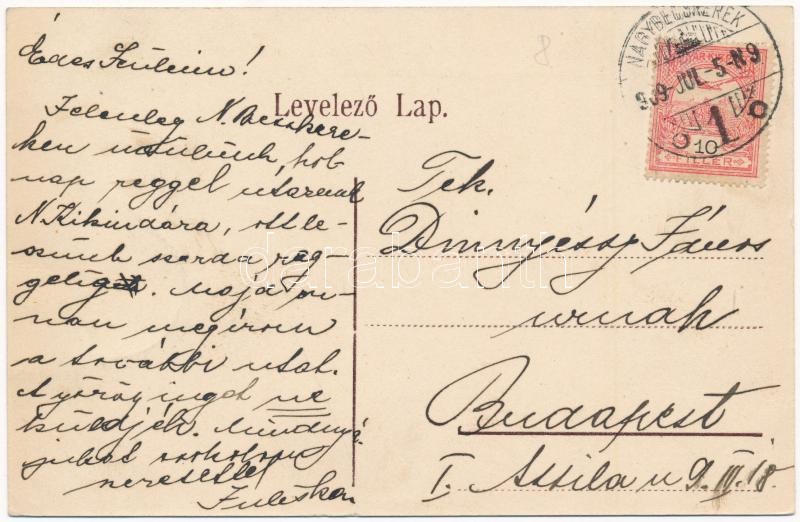 Édes Szüleim!
Jelenleg N. Becskere-
ken üdülünk, hol-
nap reggel utazunk
N Kikindára, ott le-
szünk szerda reg-
gelig. Majd on-
nan megírom
a további utat.
A inget ne
küldjék. Mindnyá-
jukat csókolom
szeretettel
Juliska
Levelező Lap.
NAGYBECSKEREK
909 JUL-5-N9
1
10
FILLÉR
8
Tek.
Dinnyéssy János
urnak
Budapest
I. Attila u 9. III. 18.
darabanth